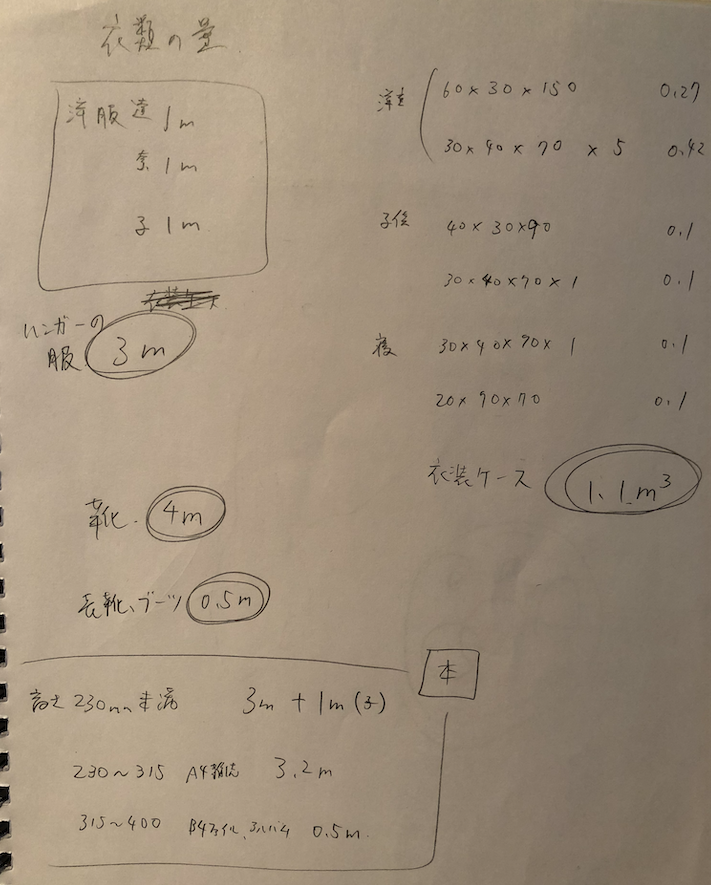 衣類の量
洋服 達 1m
奈 1m
子 1m
ハンガーの
服 3m
靴 4m
長靴、ブーツ 0.5m
60×30×150 0.27
30×40×70 ×5 0.42
子供 40×30×90 0.1
30×40×70×1 0.1
30×40×70×1 0.1
20×90×70 0.1
衣装ケース 1.1m³
本
高さ 230mm未満 3m + 1m (子)
230〜315 A4雑誌 3.2m
315〜400 B4ファイル、アルバム 0.5m